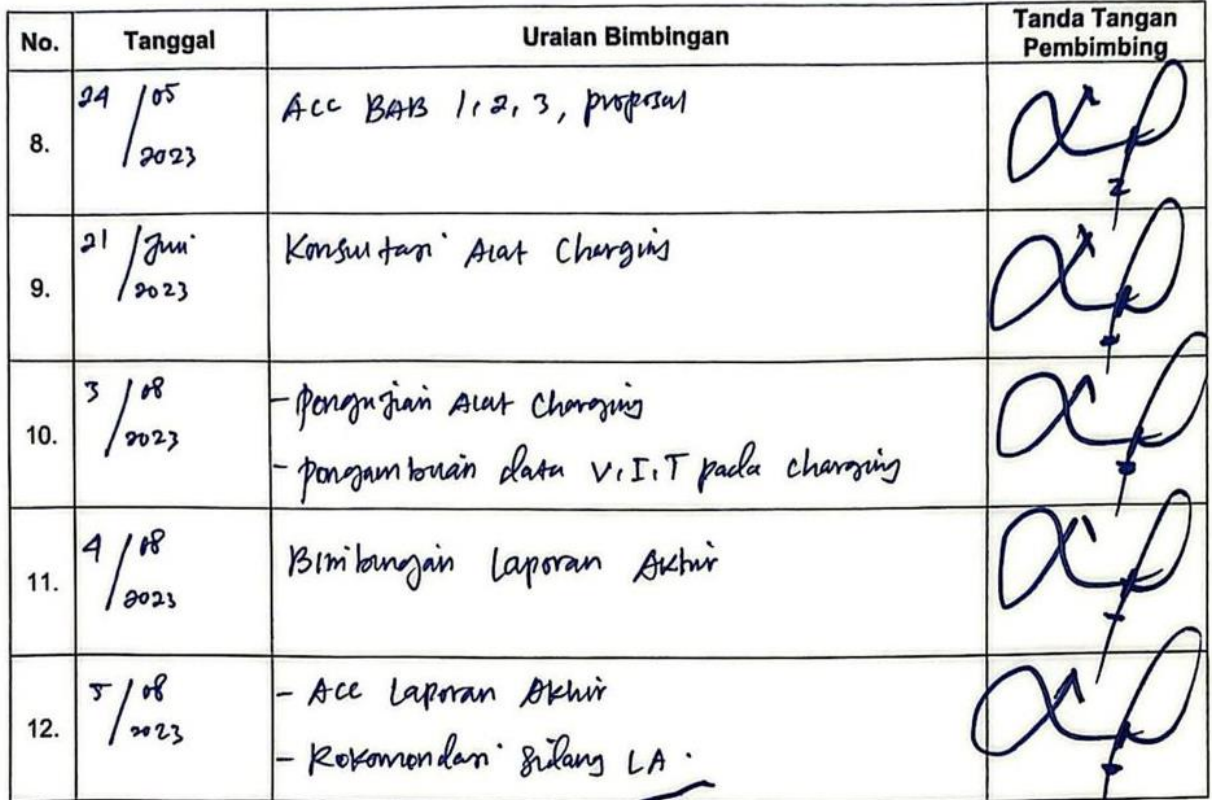 No. Tanggal Uraian Bimbingan Tanda Tangan
Pembimbing
8. 24/05 Acc BAB 1, 2, 3, proposal
2023
9. 21/Juni Konsultasi Alat Charging
2023
10. 3/08 - Pengujian Alat Charging
2023 - Pengambilan data V, I, T pada charging
11. 4/08 Bimbingan Laporan Akhir
2023
12. 5/08 - Acc Laporan Akhir
2023 - Rekomendasi Sidang LA.